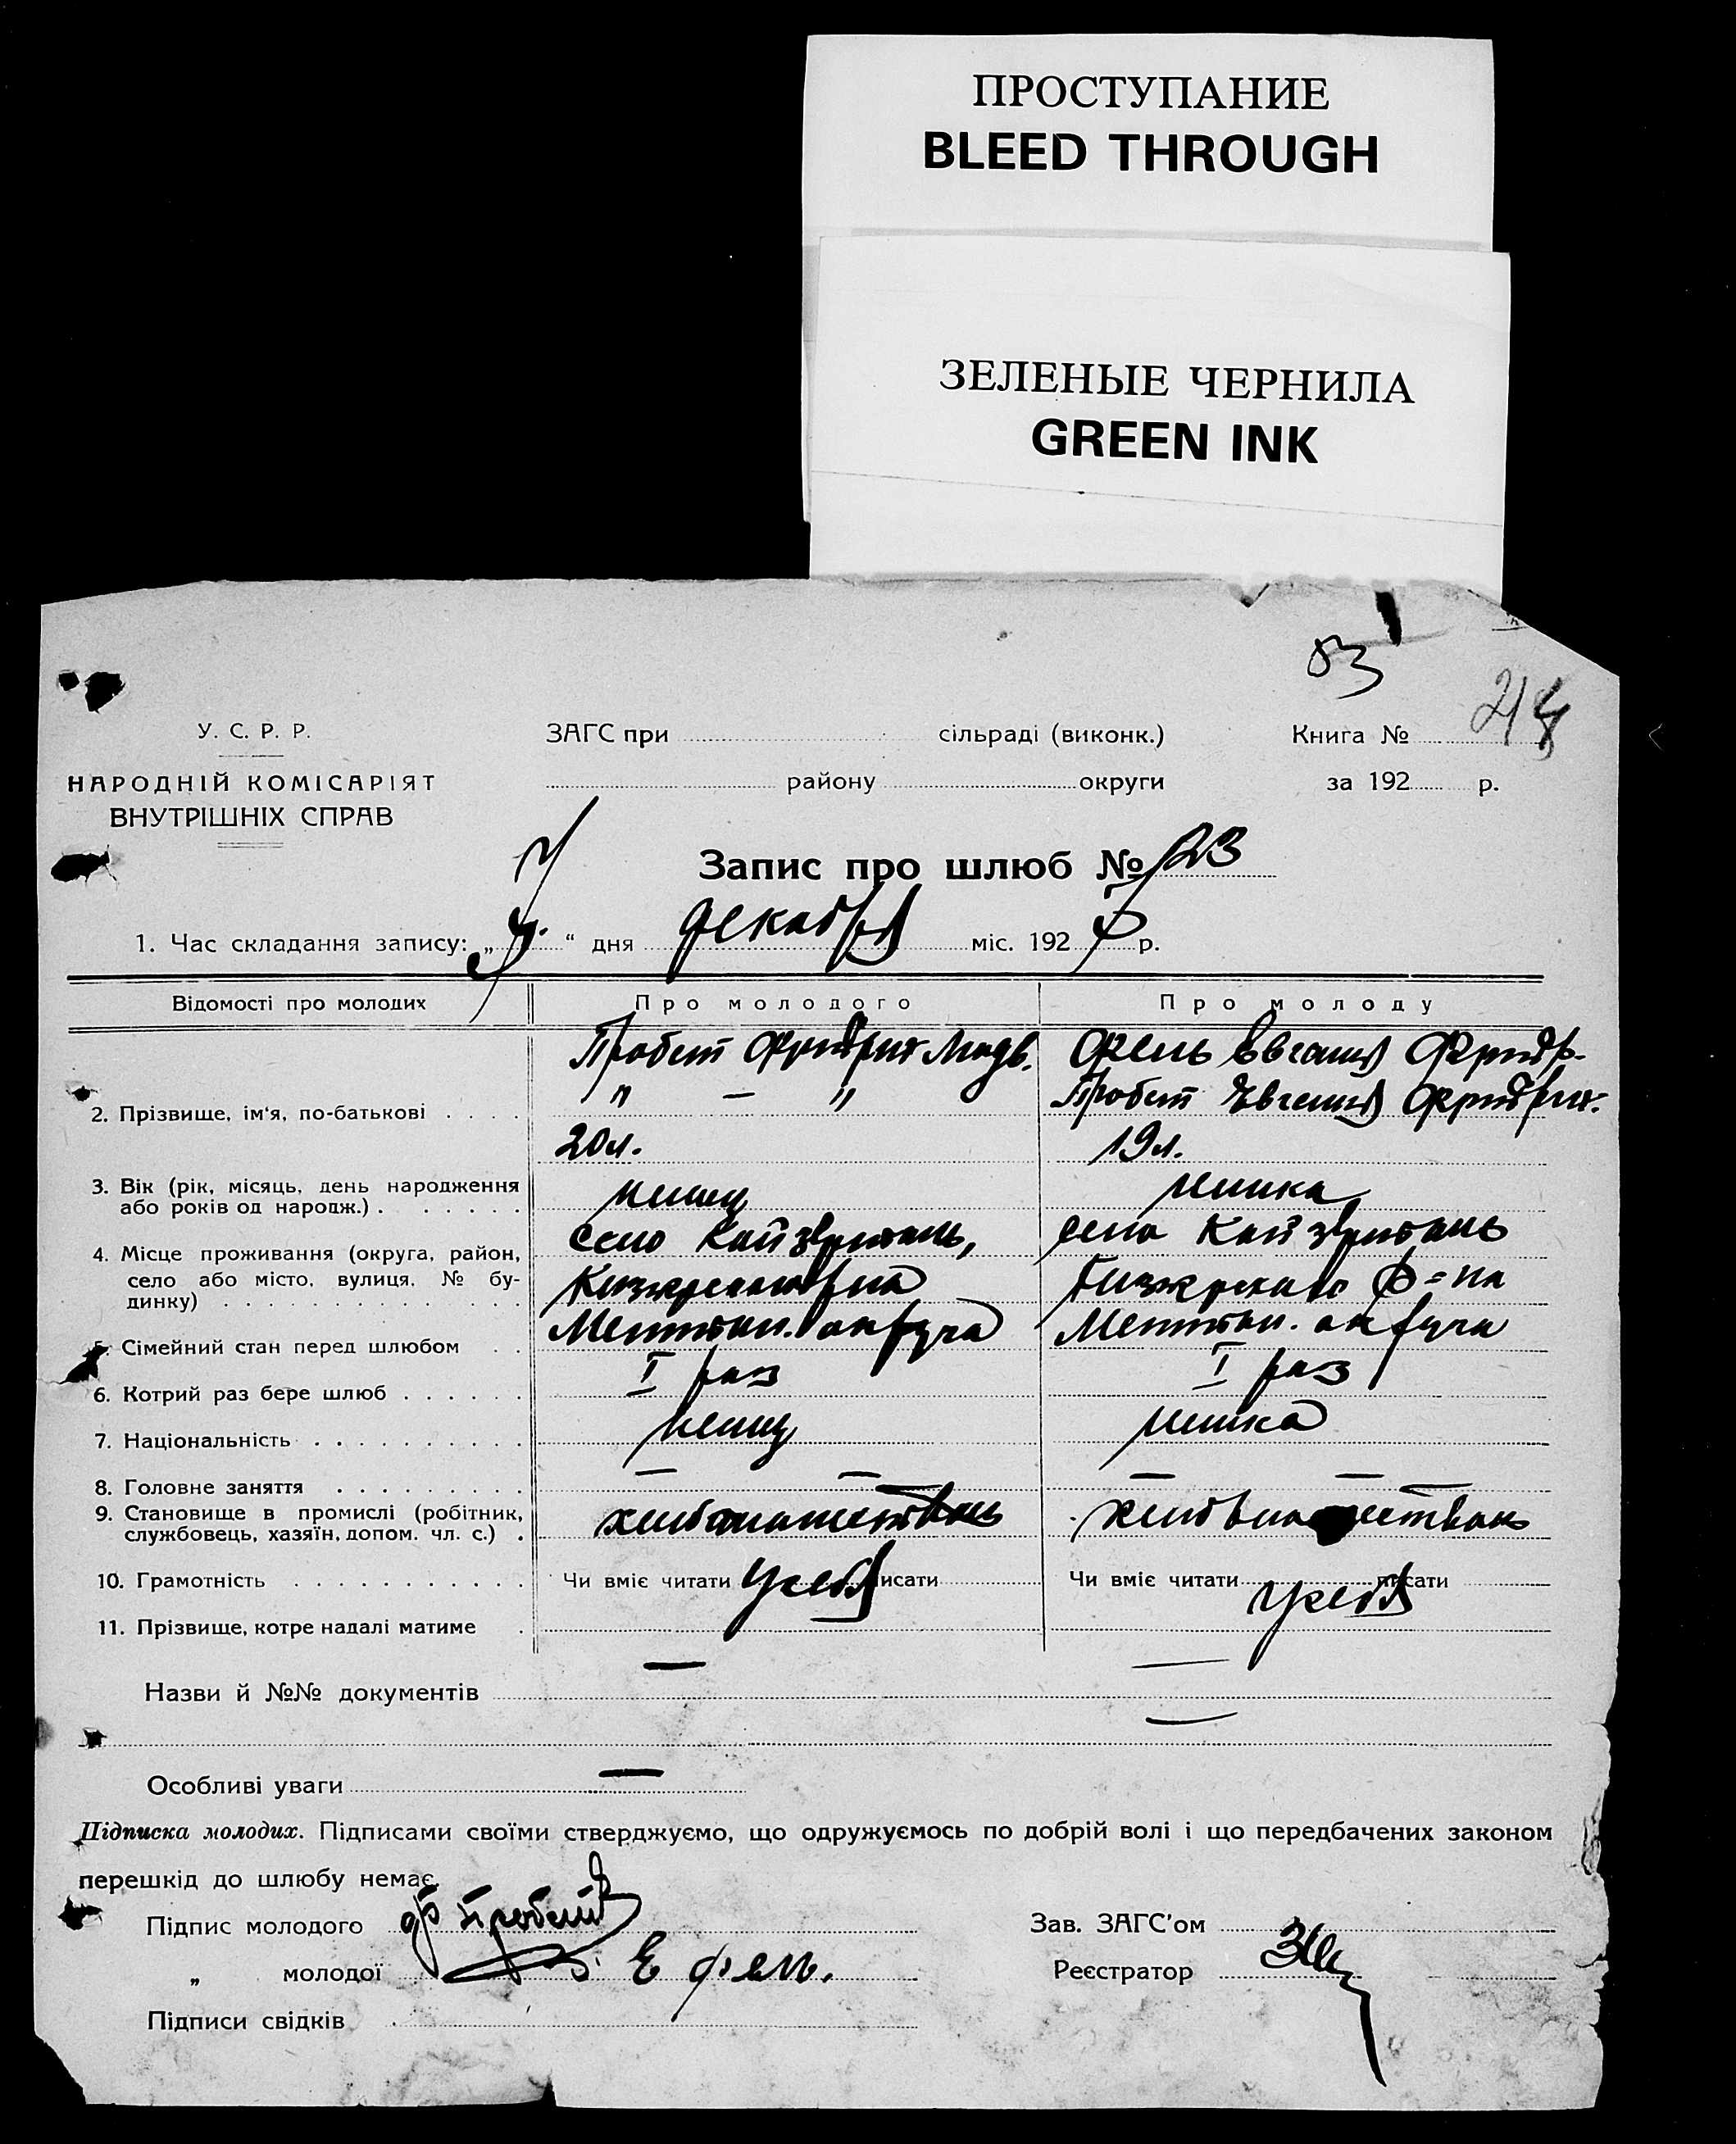 ПРОСТУПАНИЕ
BLEED THROUGH
ЗЕЛЕНЫЕ ЧЕРНИЛА
GREEN INK
83
У. С. Р. Р.
НАРОДНІЙ КОМІСАРІЯТ
ВНУТРІШНІХ СПРАВ
ЗАГС при сільраді (виконк.)
району округи
Книга №
за 192 р.
Запис про шлюб № 23
1. Час складання запису: „ “ дня декабря міс. 192 р.
Відомості про молодих Про молодого Про молоду
Пробст Фридрих Людв. Фель Евгения Фридр.
" — " Пробст Евгения Фридрих.
2. Прізвище, ім‘я, по-батькові
20 л. 19 л.
3. Вік (рік, місяць, день народження
або років од народж.)
немец немка
4. Місце проживання (округа, район,
село або місто, вулиця, № бу-
динку)
село село
р-на
Мелитоп. округа Мелитоп. округа
5. Сімейний стан перед шлюбом
I раз I раз
6. Котрий раз бере шлюб
немец немка
7. Національність
— — — —
8. Головне заняття
9. Становище в промислі (робітник,
службовець, хазяїн, допом. чл. с.)
хлебопашество
10. Грамотність Чи вміє читати писати Чи вміє читати писати
11. Прізвище, котре надалі матиме
— —
Назви й №№ документів
—
Особливі уваги —
Підписка молодих. Підписами своїми стверджуємо, що одружуємось по добрій волі і що передбачених законом
перешкід до шлюбу немає.
Підпис молодого Пробст Зав. ЗАГС’ом
„ молодої Е фель. Реєстратор
Підписи свідків